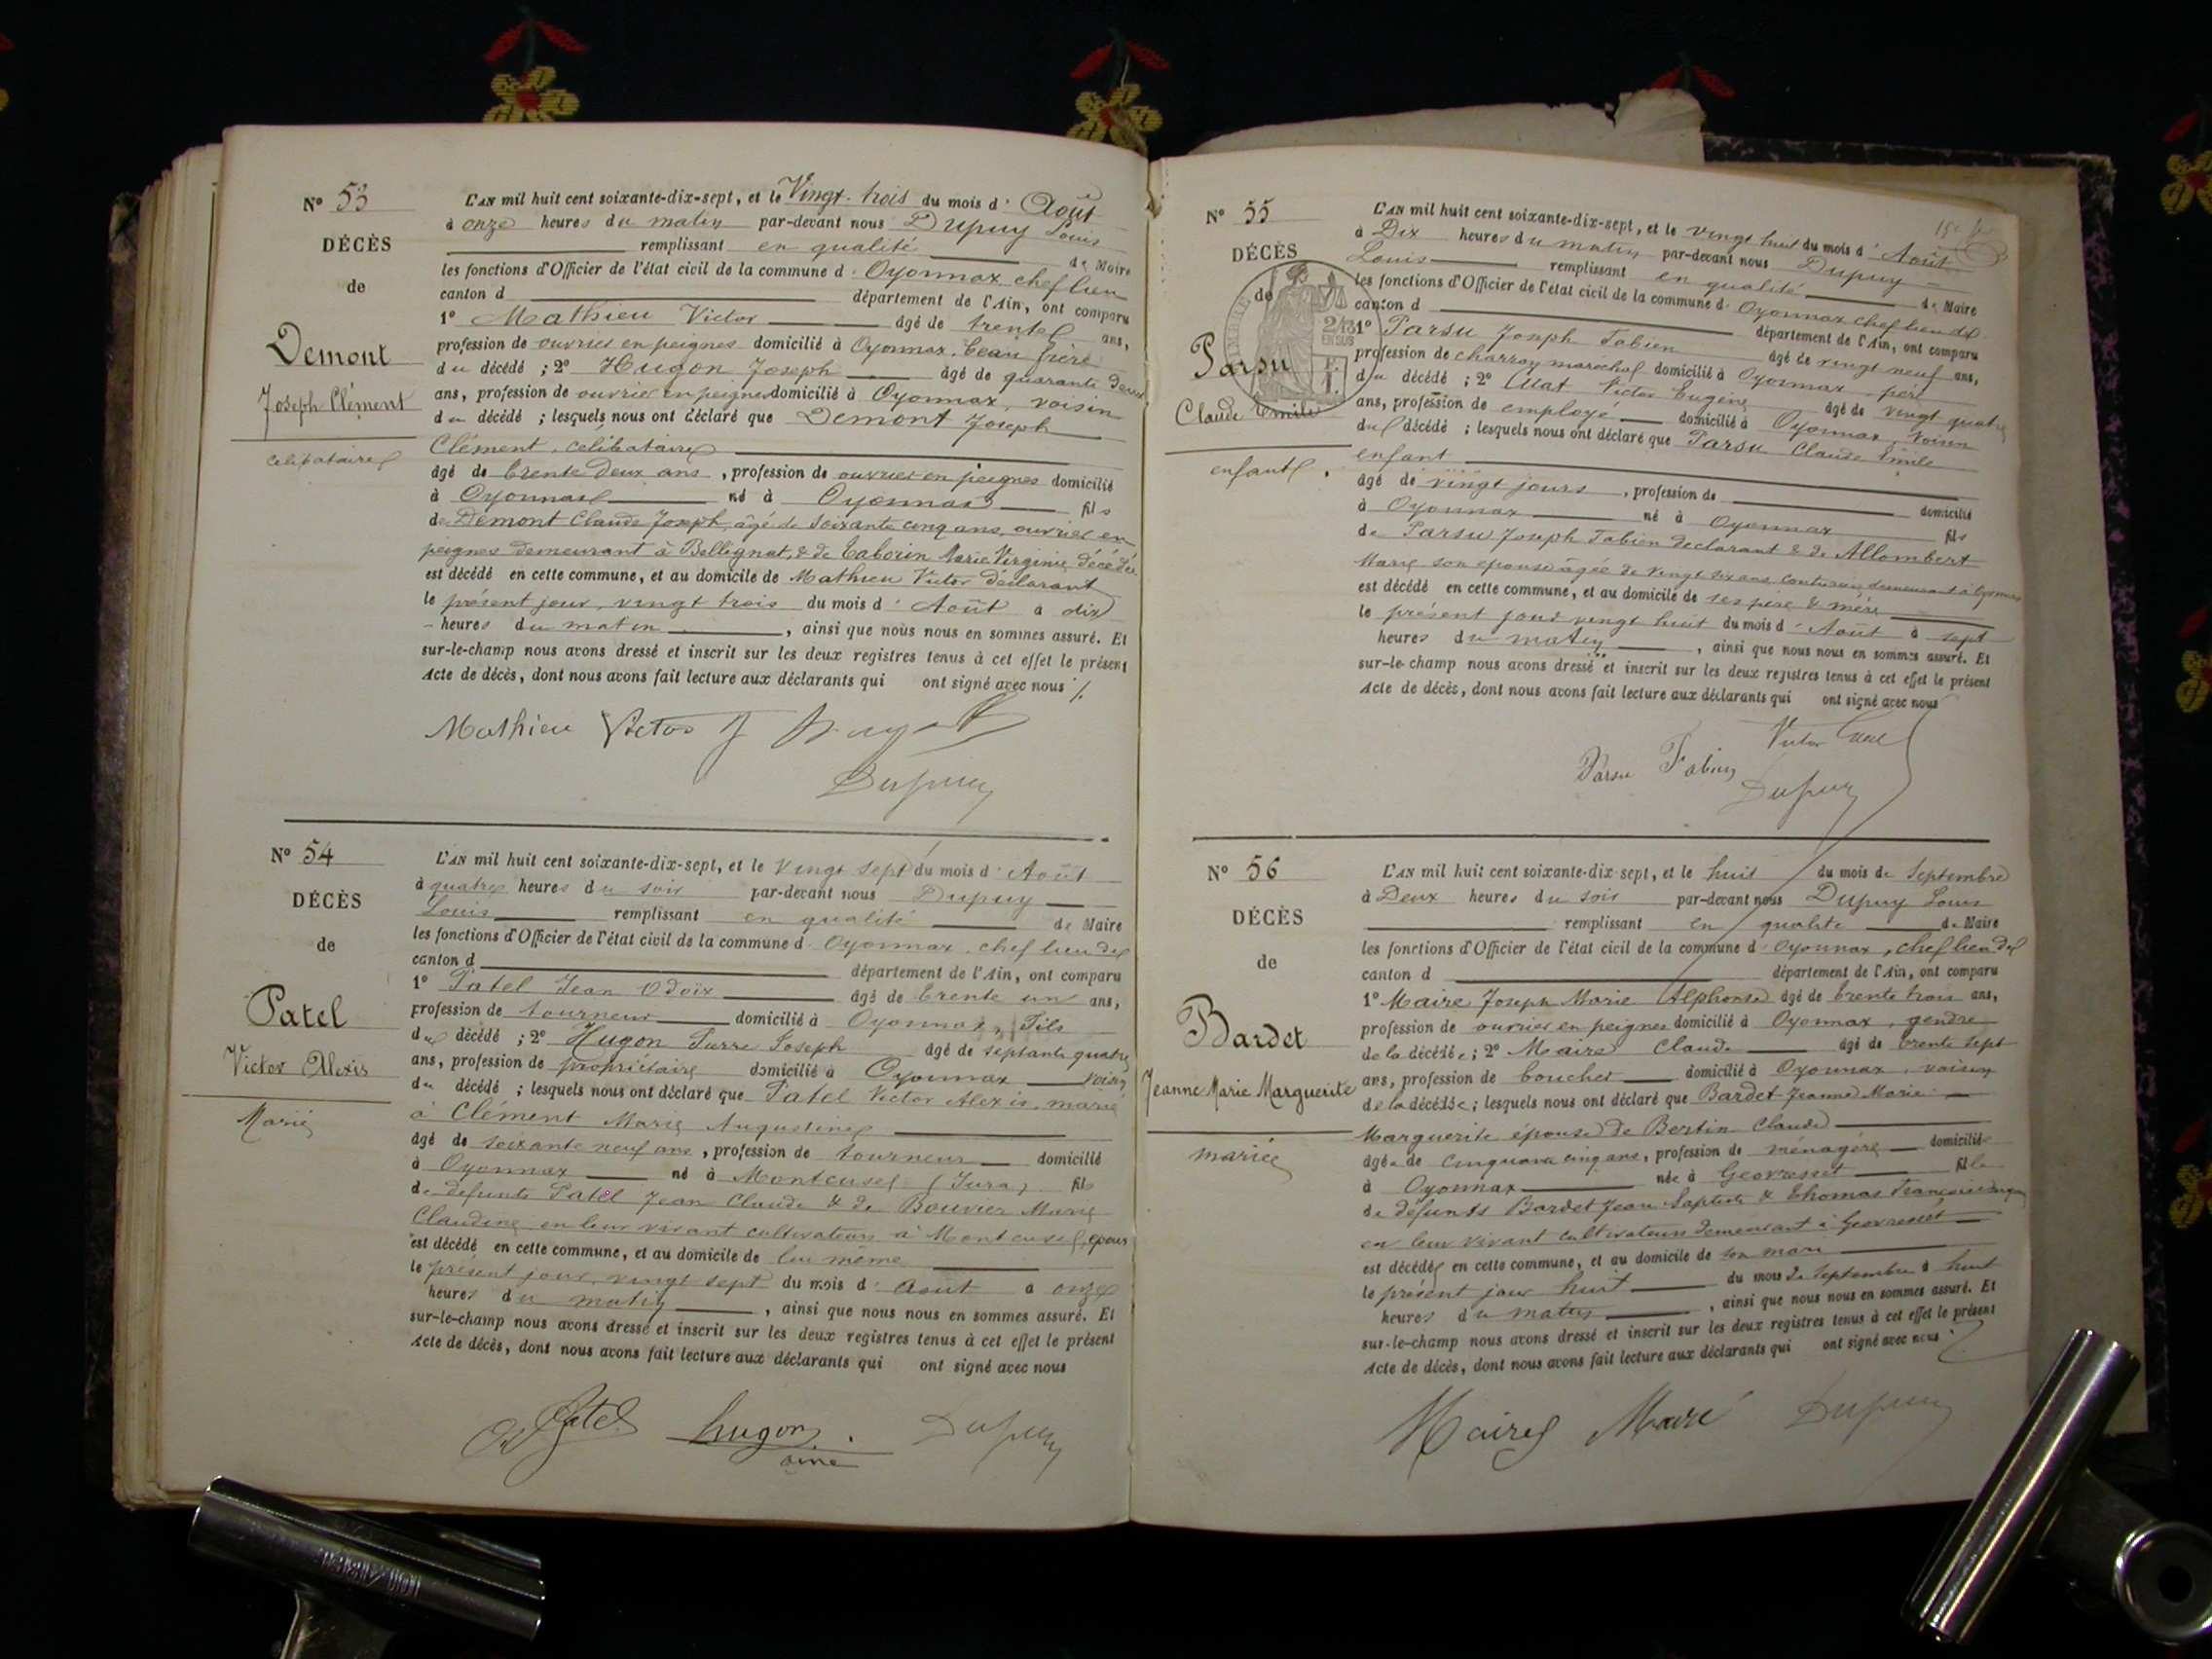 N° 53
DÉCÈS
de
Demont
Joseph Clément
célibataire
L'AN mil huit cent soixante-dix-sept, et le Vingt-trois du mois d'Août
à onze heures du matin par-devant nous Dupuy Louis
remplissant en qualité de Maire
les fonctions d'Officier de l'état civil de la commune d'Oyonnax chef lieu
canton d département de l'Ain, ont comparu
1° Mathieu Victor âgé de trente ans,
profession de ouvrier en peignes domicilié à Oyonnax, beau frère
du décédé ; 2° Hugon Joseph âgé de quarante deux
ans, profession de ouvrier en peignes domicilié à Oyonnax, voisin
du décédé ; lesquels nous ont déclaré que Demont Joseph
Clément, célibataire
âgé de trente deux ans, profession de ouvrier en peignes domicilié
à Oyonnax né à Oyonnax fils
de Demont Claude Joseph, âgé de soixante cinq ans, ouvrier en
peignes demeurant à Bellignat, & de Taborin Marie Virginie décédée
est décédé en cette commune, et au domicile de Mathieu Victor déclarant
le présent jour, vingt trois du mois d'Août à dix
heures du matin, ainsi que nous nous en sommes assuré. Et
sur-le-champ nous avons dressé et inscrit sur les deux registres tenus à cet effet le présent
Acte de décès, dont nous avons fait lecture aux déclarants qui ont signé avec nous
Mathieu Victor
Dupuy
N° 54
DÉCÈS
de
Patel
Victor Alexis
Marié
L'AN mil huit cent soixante-dix-sept, et le vingt sept du mois d'Août
à quatre heures du soir par-devant nous Dupuy
Louis remplissant en qualité de Maire
les fonctions d'Officier de l'état civil de la commune d'Oyonnax, chef lieu de
canton d département de l'Ain, ont comparu
1° Patel Jean Odoix âgé de trente un ans,
profession de tourneur domicilié à Oyonnax, Fils
du décédé ; 2° Hugon Pierre Joseph âgé de septante quatre
ans, profession de propriétaire domicilié à Oyonnax voisin
du décédé ; lesquels nous ont déclaré que Patel Victor Alexis, marié
à Clément Marie Augustine
âgé de soixante neuf ans, profession de tourneur domicilié
à Oyonnax né à Montcusel (Jura) fils
de défunts Patel Jean Claude & de Bouvier Marie
Claudine en leur vivant cultivateurs à Montcusel, époux
est décédé en cette commune, et au domicile de lui même
le présent jour, vingt sept du mois d'Août à onze
heures du matin, ainsi que nous nous en sommes assuré. Et
sur-le-champ nous avons dressé et inscrit sur les deux registres tenus à cet effet le présent
Acte de décès, dont nous avons fait lecture aux déclarants qui ont signé avec nous
Patel hugon Dupuy
aîné
N° 55
DÉCÈS
de
Parsu
Claude Emile
enfant
L'AN mil huit cent soixante-dix-sept, et le vingt huit du mois d'Août
à Dix heures du matin par-devant nous Dupuy
Louis remplissant en qualité de Maire
les fonctions d'Officier de l'état civil de la commune d'Oyonnax chef lieu de
canton d département de l'Ain, ont comparu
1° Parsu Joseph Fabien âgé de vingt neuf ans,
profession de charron maréchal domicilié à Oyonnax, père
du décédé ; 2° Victor Eugène âgé de vingt quatre
ans, profession de employé domicilié à Oyonnax, voisin
du décédé ; lesquels nous ont déclaré que Parsu Claude Emile
enfant
âgé de vingt jours, profession de domicilié
à Oyonnax né à Oyonnax fils
de Parsu Joseph Fabien déclarant & de Allombert
Marie son épouse âgée de vingt six ans, couturière demeurant à Oyonnax
est décédé en cette commune, et au domicile de ses père & mère
le présent jour vingt huit du mois d'Août à sept
heures du matin, ainsi que nous nous en sommes assuré. Et
sur-le-champ nous avons dressé et inscrit sur les deux registres tenus à cet effet le présent
Acte de décès, dont nous avons fait lecture aux déclarants qui ont signé avec nous
Victor
Parsu Fabien
Dupuy
N° 56
DÉCÈS
de
Bardet
Jeanne Marie Marguerite
mariée
L'AN mil huit cent soixante-dix-sept, et le huit du mois de Septembre
à Deux heures du soir par-devant nous Dupuy Louis
remplissant en qualité de Maire
les fonctions d'Officier de l'état civil de la commune d'Oyonnax, chef lieu de
canton d département de l'Ain, ont comparu
1° Maire Joseph Marie Alphonse âgé de trente trois ans,
profession de ouvrier en peignes domicilié à Oyonnax, gendre
de la décédée ; 2° Maire Claude âgé de trente sept
ans, profession de boucher domicilié à Oyonnax, voisin
de la décédée ; lesquels nous ont déclaré que Bardet Jeanne Marie
Marguerite épouse de Bertin Claude
âgée de cinquante cinq ans, profession de ménagère domiciliée
à Oyonnax née à Geovresset fille
de défunts Bardet Jean Baptiste & Thomas Françoise
en leur vivant cultivateurs demeurant à Geovresset
est décédée en cette commune, et au domicile de son mari
le présent jour huit du mois de Septembre à huit
heures du matin, ainsi que nous nous en sommes assuré. Et
sur-le-champ nous avons dressé et inscrit sur les deux registres tenus à cet effet le présent
Acte de décès, dont nous avons fait lecture aux déclarants qui ont signé avec nous
Maire Maire Dupuy